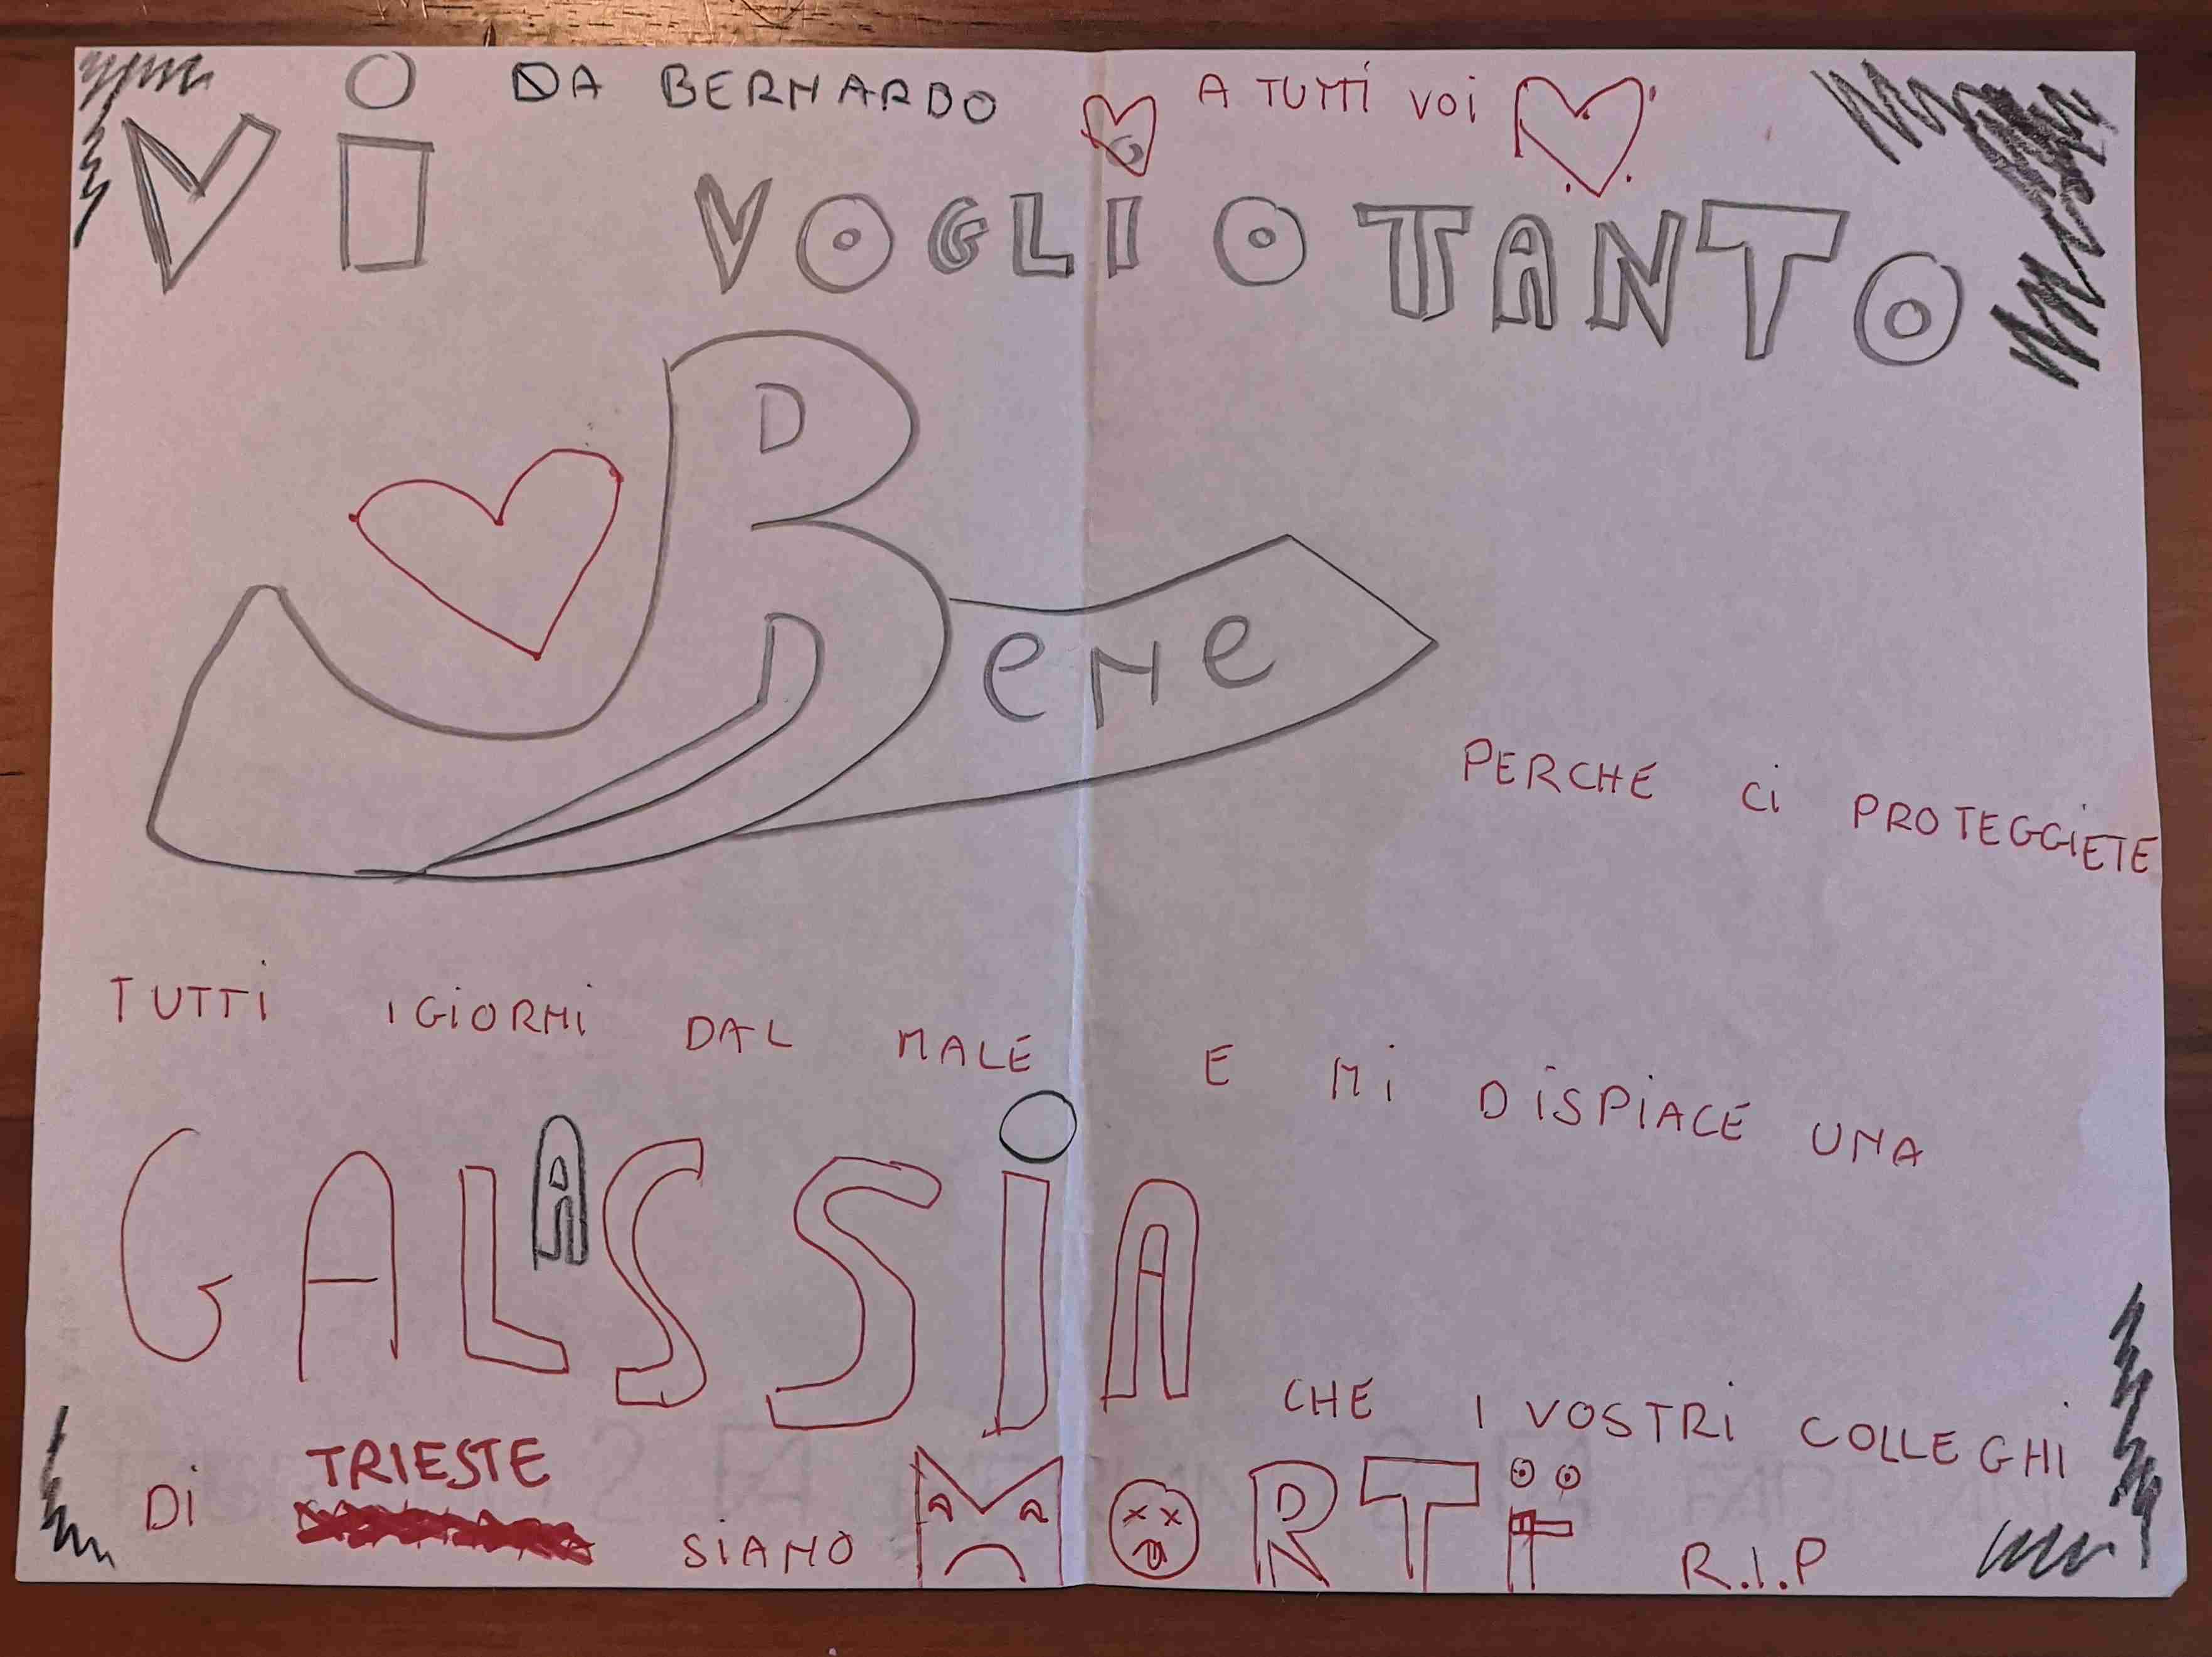 DA BERNARDO A TUTTI VOI
Vi VOGLIO TANTO
Bene
PERCHE Ci PROTEGGiETE
TUTTi I GiORNi DAL MALE E Mi DiSPiACE UNA
GALASSiA CHE I VOSTRi COLLEGHi
Di TRIESTE SiANO MORTi R.I.P